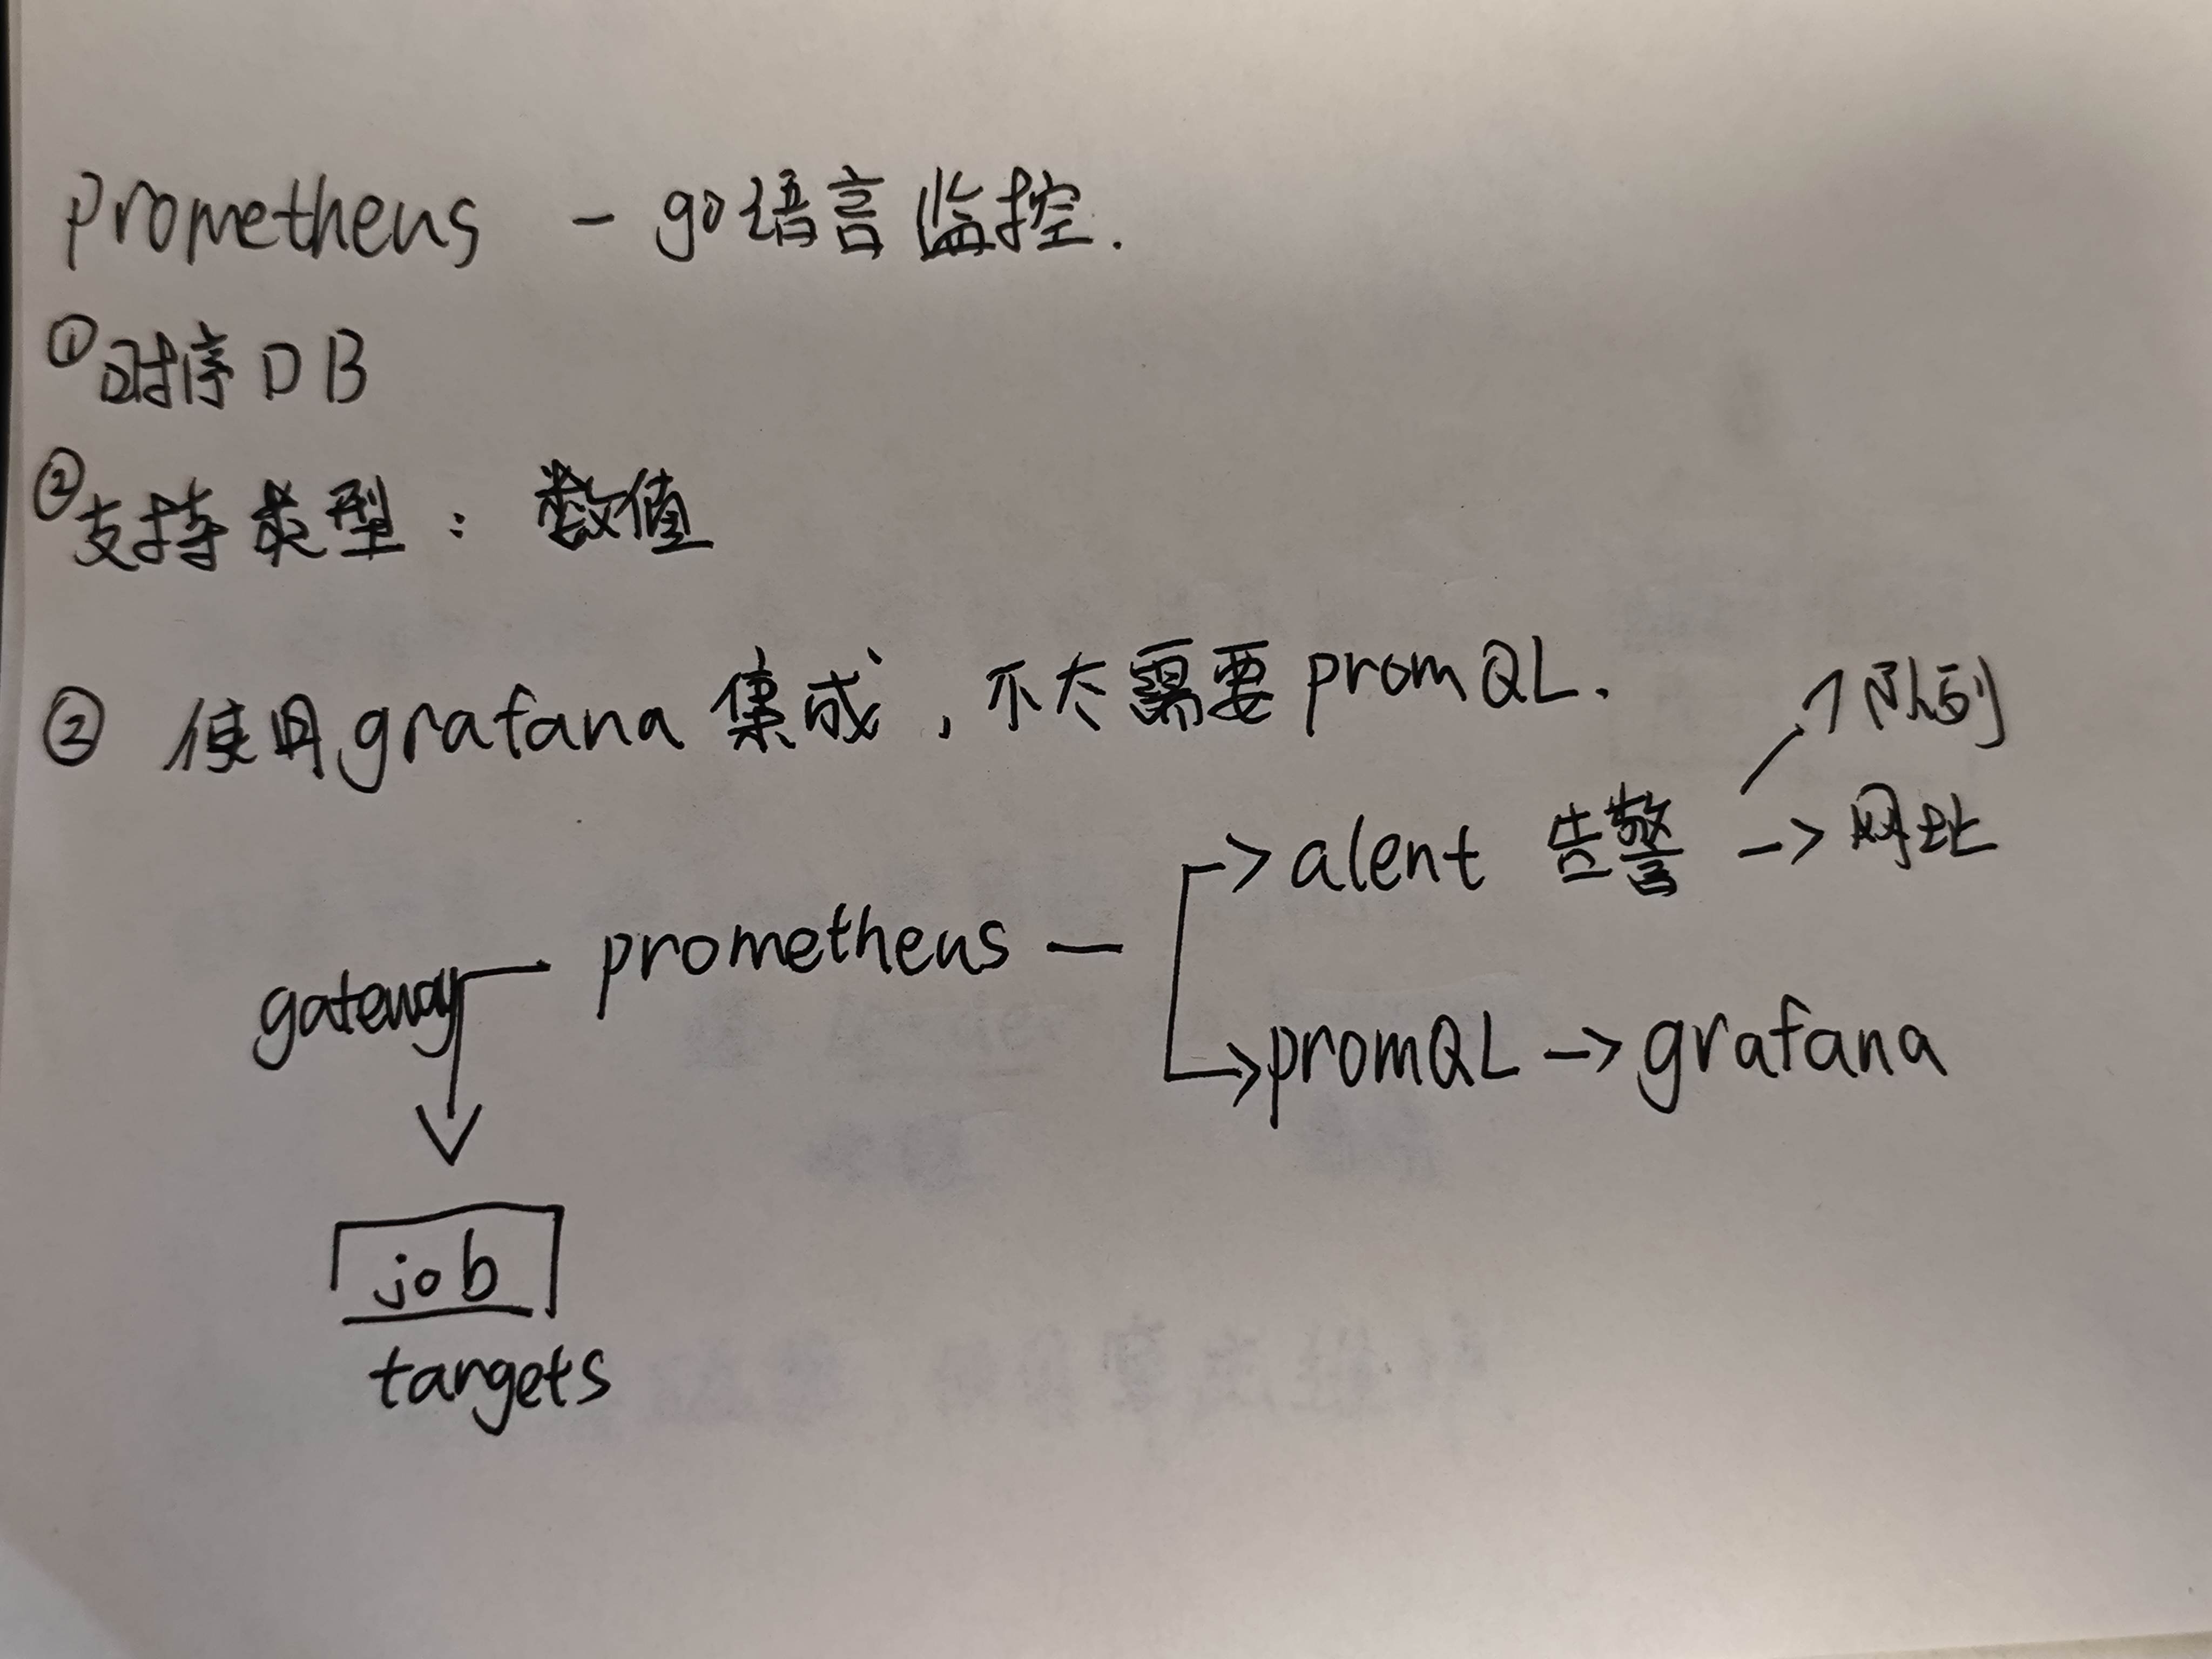 prometheus - go语言监控.
①时序DB
②支持类型：数值
② 使用grafana集成，不太需要promQL.
个队列
-> alent 告警 -> 网址
gateway - prometheus -
-> promQL -> grafana
job
targets